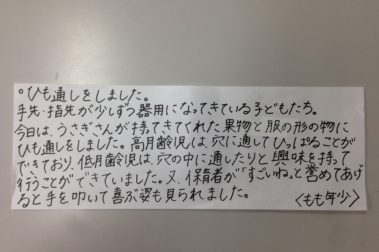 ○ひも通しをしました。
手先・指先が少しずつ器用になってきている子どもたち。
今日は、うさぎさんが持ってきてくれた果物と服の形の物に
ひも通しをしました。高月齢児は、穴に通してひっぱることが
できており、低月齢児は、穴の中に通したりと興味を持って
行うことができていました。又、保育者が「すごいね」と誉めてあげ
ると手を叩いて喜ぶ姿も見られました。
〈もも年少〉